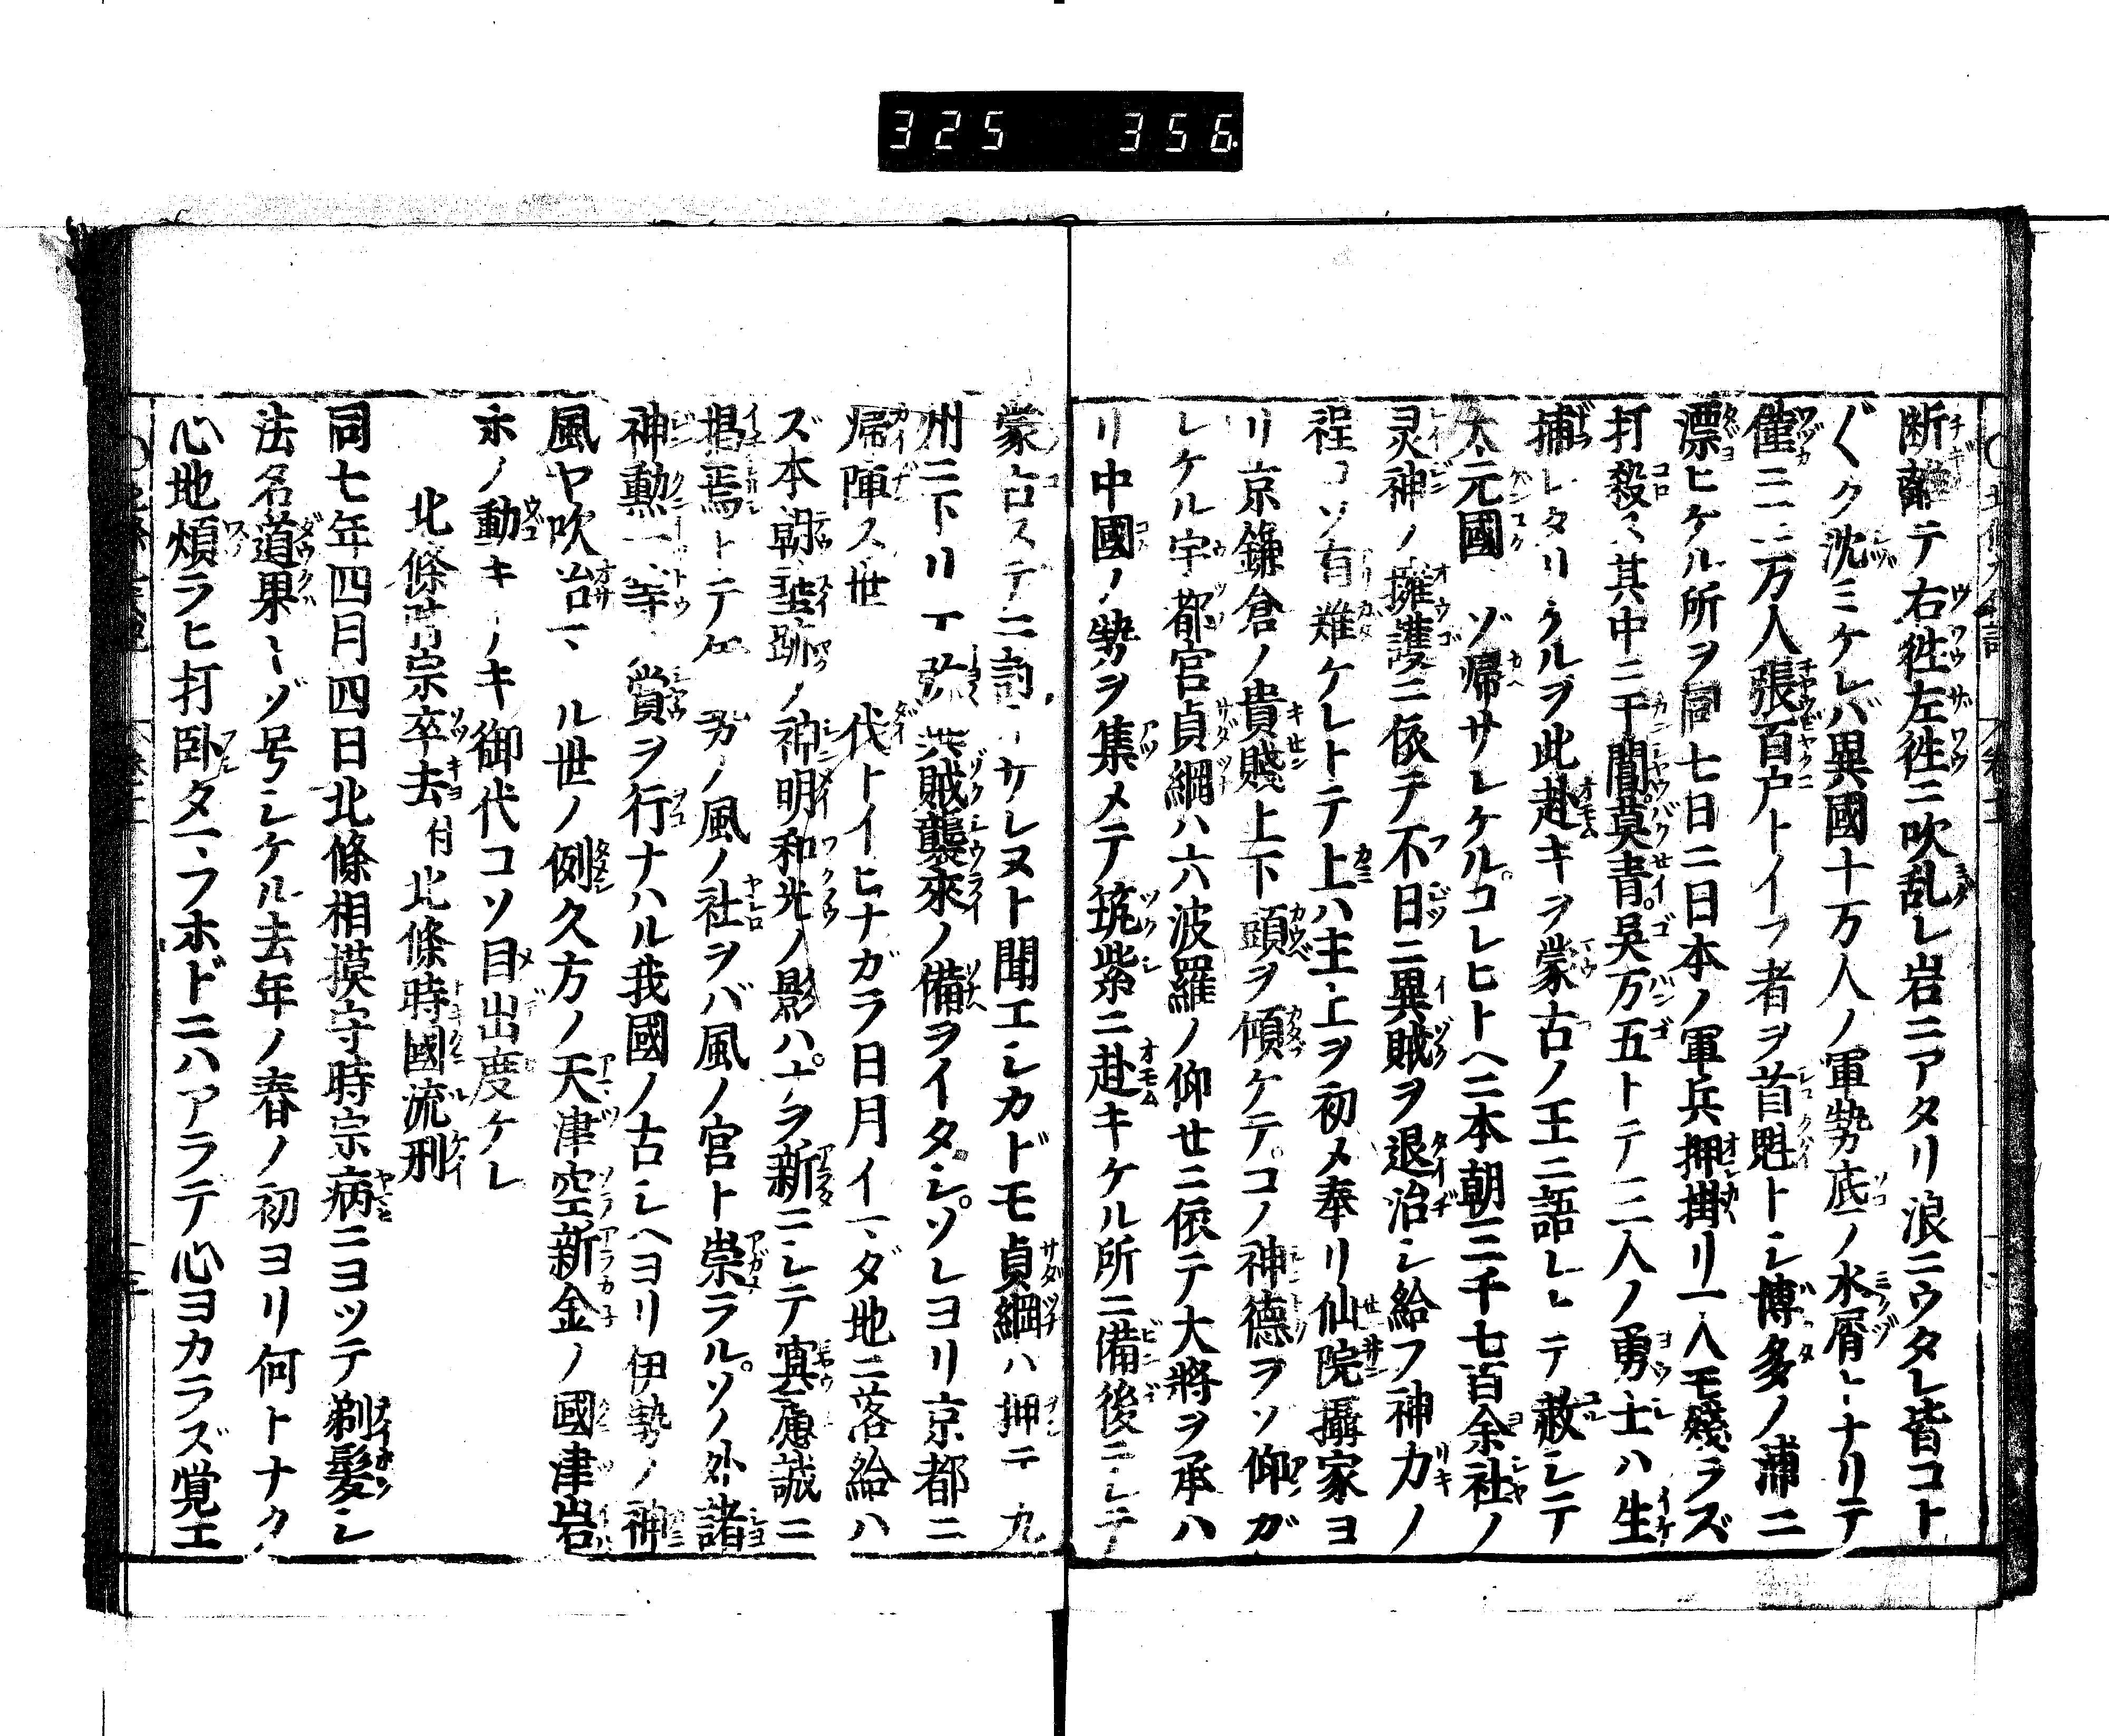 325 356
断離テ右往左往ニ吹乱レ岩ニアタリ浪ニウタレ皆コト
〲ク沈ミケレバ異國十万人ノ軍勢底ノ水屑トナリテ
僅ニ二三万人張百戸トイフ者ヲ首魁トシ博多ノ浦ニ
漂ヒケル所ヲ同七日ニ日本ノ軍兵押掛リ一人モ殘ラズ
打殺ス其中ニ干閶莫青呉万五トテ三人ノ勇士ハ生
捕レタリケルヲ此赴キヲ蒙古ノ王ニ語レトテ赦シテ
大元國ヘゾ帰サレケルコレヒトヘニ本朝三千七百余社ノ
灵神ノ擁護ニ依テ不日ニ異賊ヲ退治シ給フ神力ノ
程コソ有難ケレトテ上ハ主上ヲ初メ奉リ仙院攝家ヨ
リ京鎌倉ノ貴賤上下頭ヲ傾ケテコノ神德ヲソ仰ガ
レケル宇都宮貞綱ハ六波羅ノ仰セニ依テ大將ヲ承ハ
リ中國ノ勢ヲ集メテ筑紫ニ赴キケル所ニ備後ニシテ
蒙古ステニ討レヌト聞エシカドモ貞綱ハ押テ九
州ニ下リテ弥異賊襲來ノ備ヲイタシソレヨリ京都ニ
帰陣ス世 代トイヒナガラ日月イマダ地ニ落給ハ
ズ本朝垂跡ノ神明和光ノ影ハナヲ新ニシテ冥慮誠ニ
掲焉トテ 風ノ社ヲバ風ノ宮ト崇ラルソノ外諸
神勲一等ノ賞ヲ行ナハル我國ノ古シヘヨリ伊勢ノ神
風ヤ吹治マル世ノ例久方ノ天津空新金ノ國津岩
ネノ動キナキ御代コソ目出度ケレ
北條時宗卒去付北條時國流刑
同七年四月四日北條相摸守時宗病ニヨツテ剃髪シ
法名道果トゾ号シケル去年ノ春ノ初ヨリ何トナク
心地煩ラヒ打臥タマフホドニハアラテ心ヨカラズ覚エ